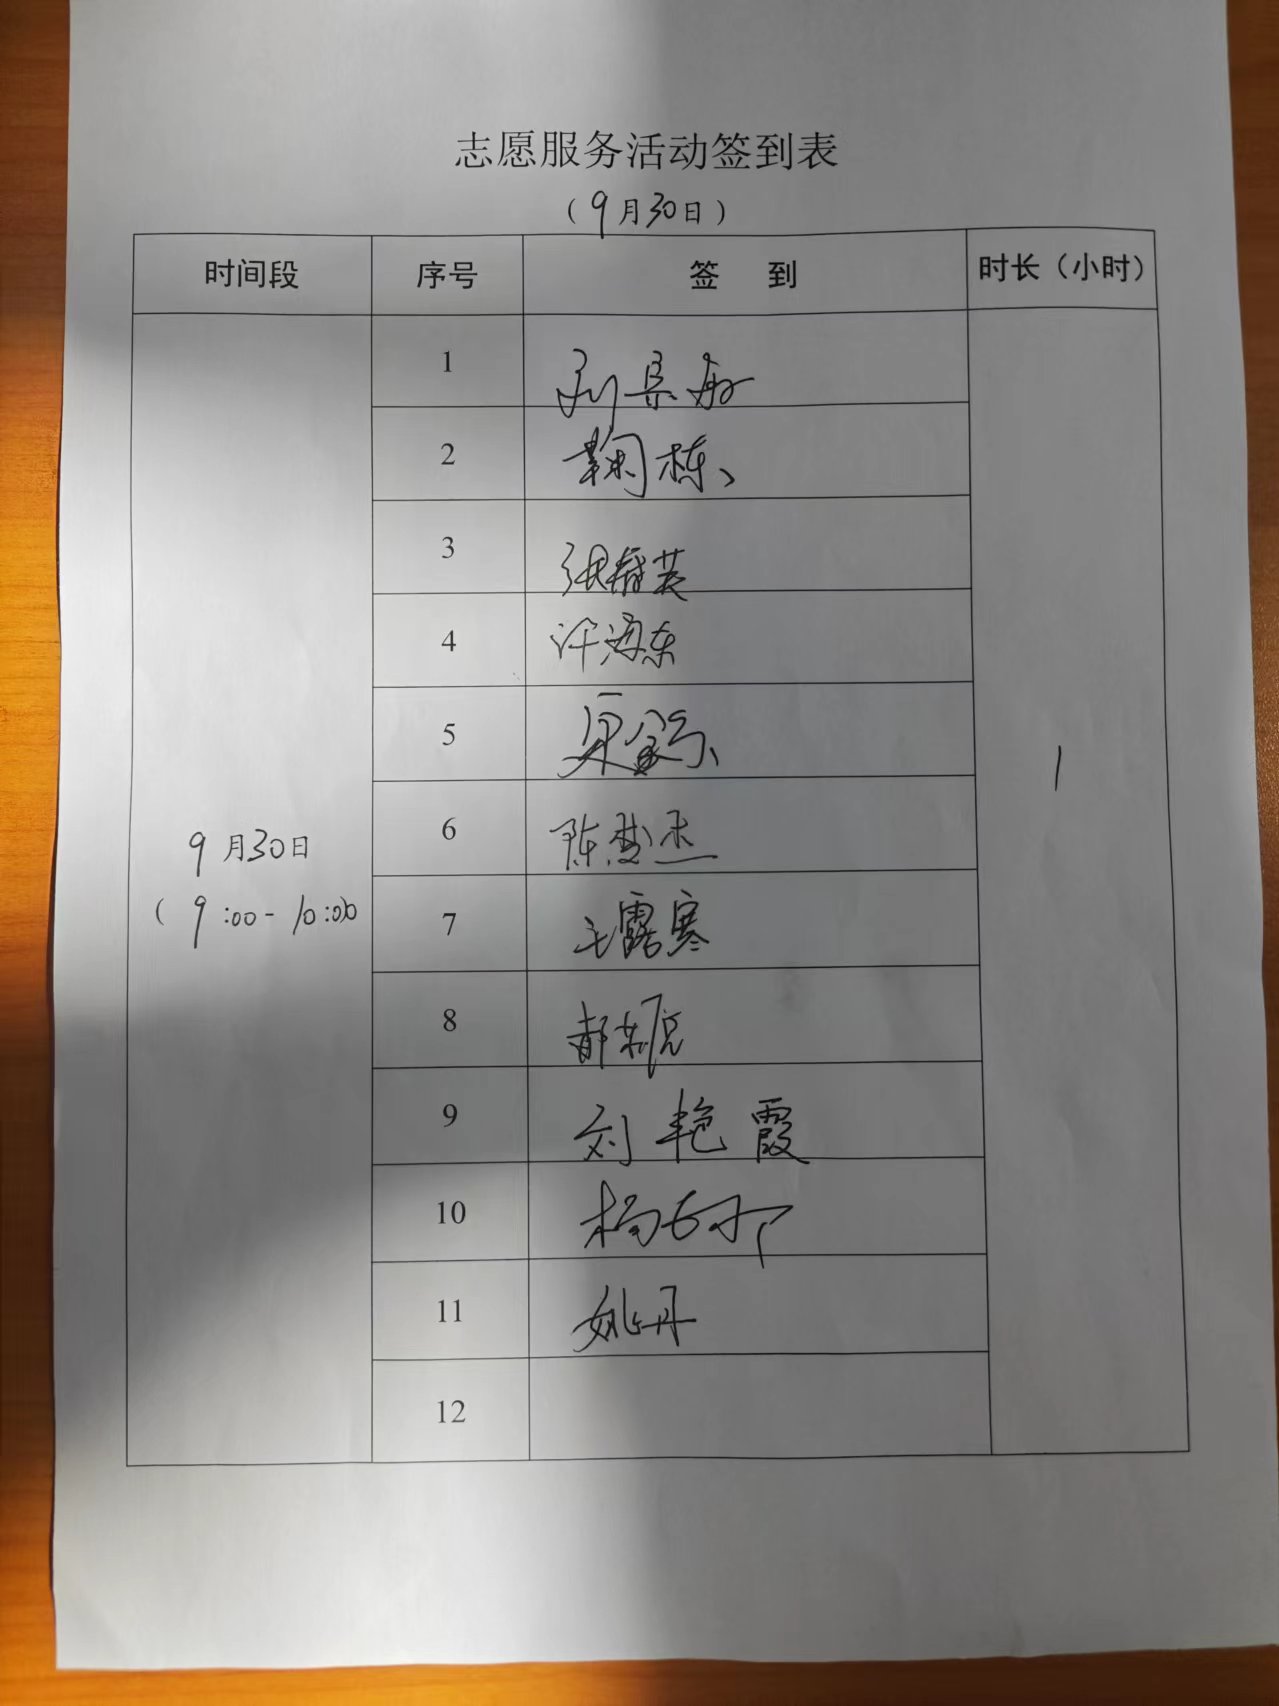 志愿服务活动签到表
（9月30日）
时间段 序号 签 到 时长（小时）
1 刘
2 鞠栋
3 张春英
4 许海东
5
6 陈楚杰
7 王露寒
8 郝东
9 刘艳霞
10 杨
11 姚丹
12
9月30日
（9:00-10:00
1